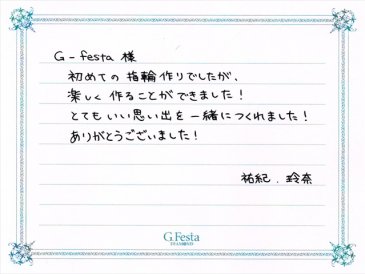 G-festa 様
初めての指輪作りでしたが、
楽しく作ることができました！
とてもいい思い出を一緒につくれました！
ありがとうございました！
祐紀．玲奈
G.Festa